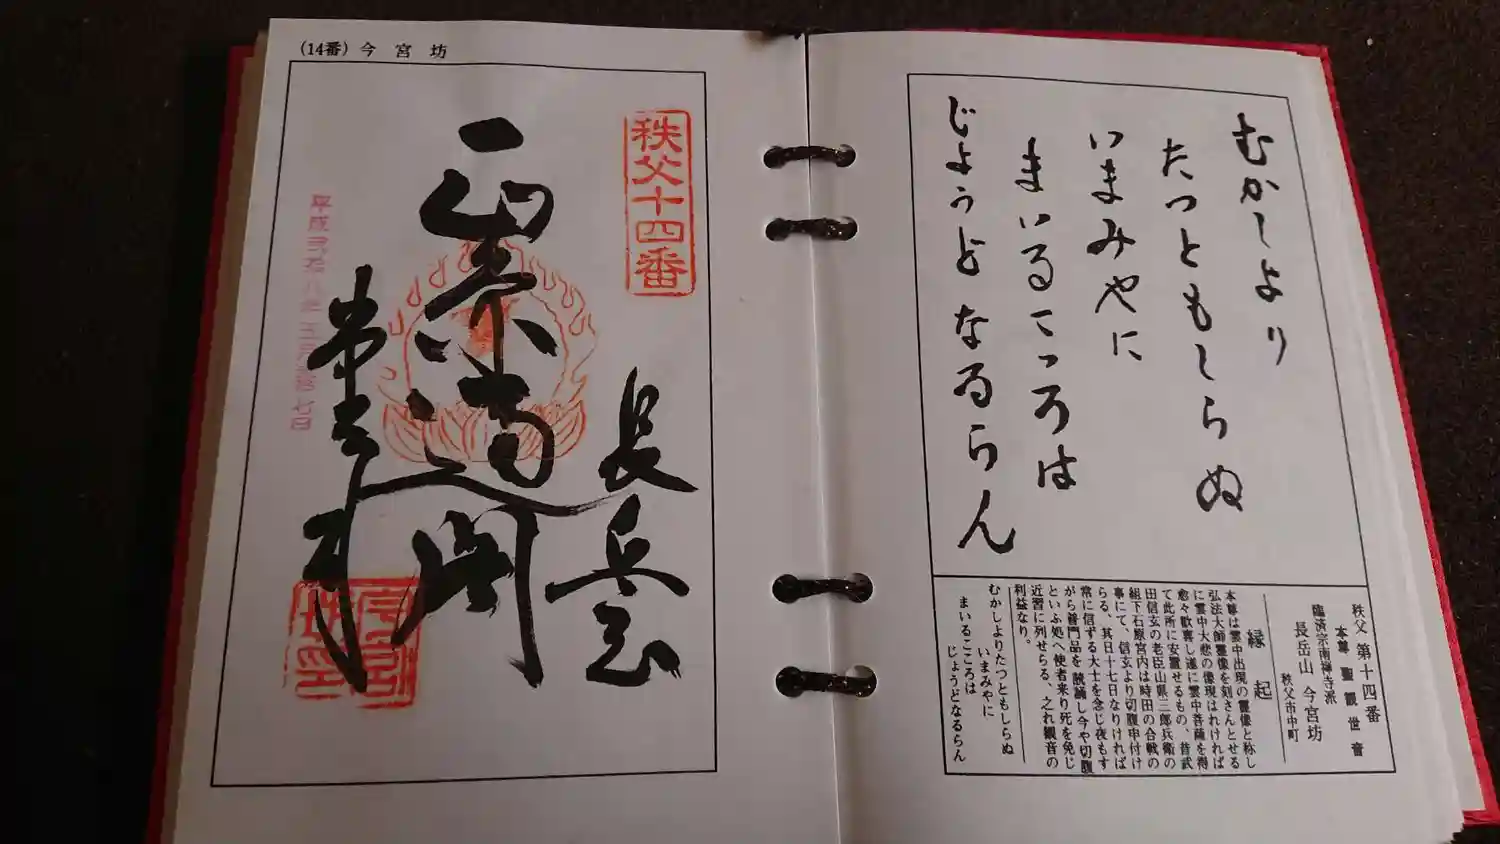 むかしより
たつともしらぬ
いまみやに
まいるこゝろは
じょうどなるらん
秩父 第十四番
本尊 聖観世音
臨済宗南禅寺派
長岳山 今宮坊
秩父市中町
縁起
本尊は雲中出現の霊像と称し
弘法大師霊像を刻さんとせる
に雲中大悲の像現はれければ
愈々歓喜し遂に雲中菩薩を得
て此所に安置せるもの、昔武
田信玄の老臣山県三郎兵衛の
組下石原宮内は時田の合戦の
事にて、信玄より切腹申付け
らる、其日十七日なりければ
常に信ずる大士を念じ夜もす
がら普門品を読誦し今や切腹
といふ処へ使者来り死を免じ
近習に列せらる、之れ観音の
利益なり。
むかしよりたつともしらぬ
いまみやに
まいるこころは
じょうどなるらん
(14番) 今宮坊
秩父十四番
長岳山